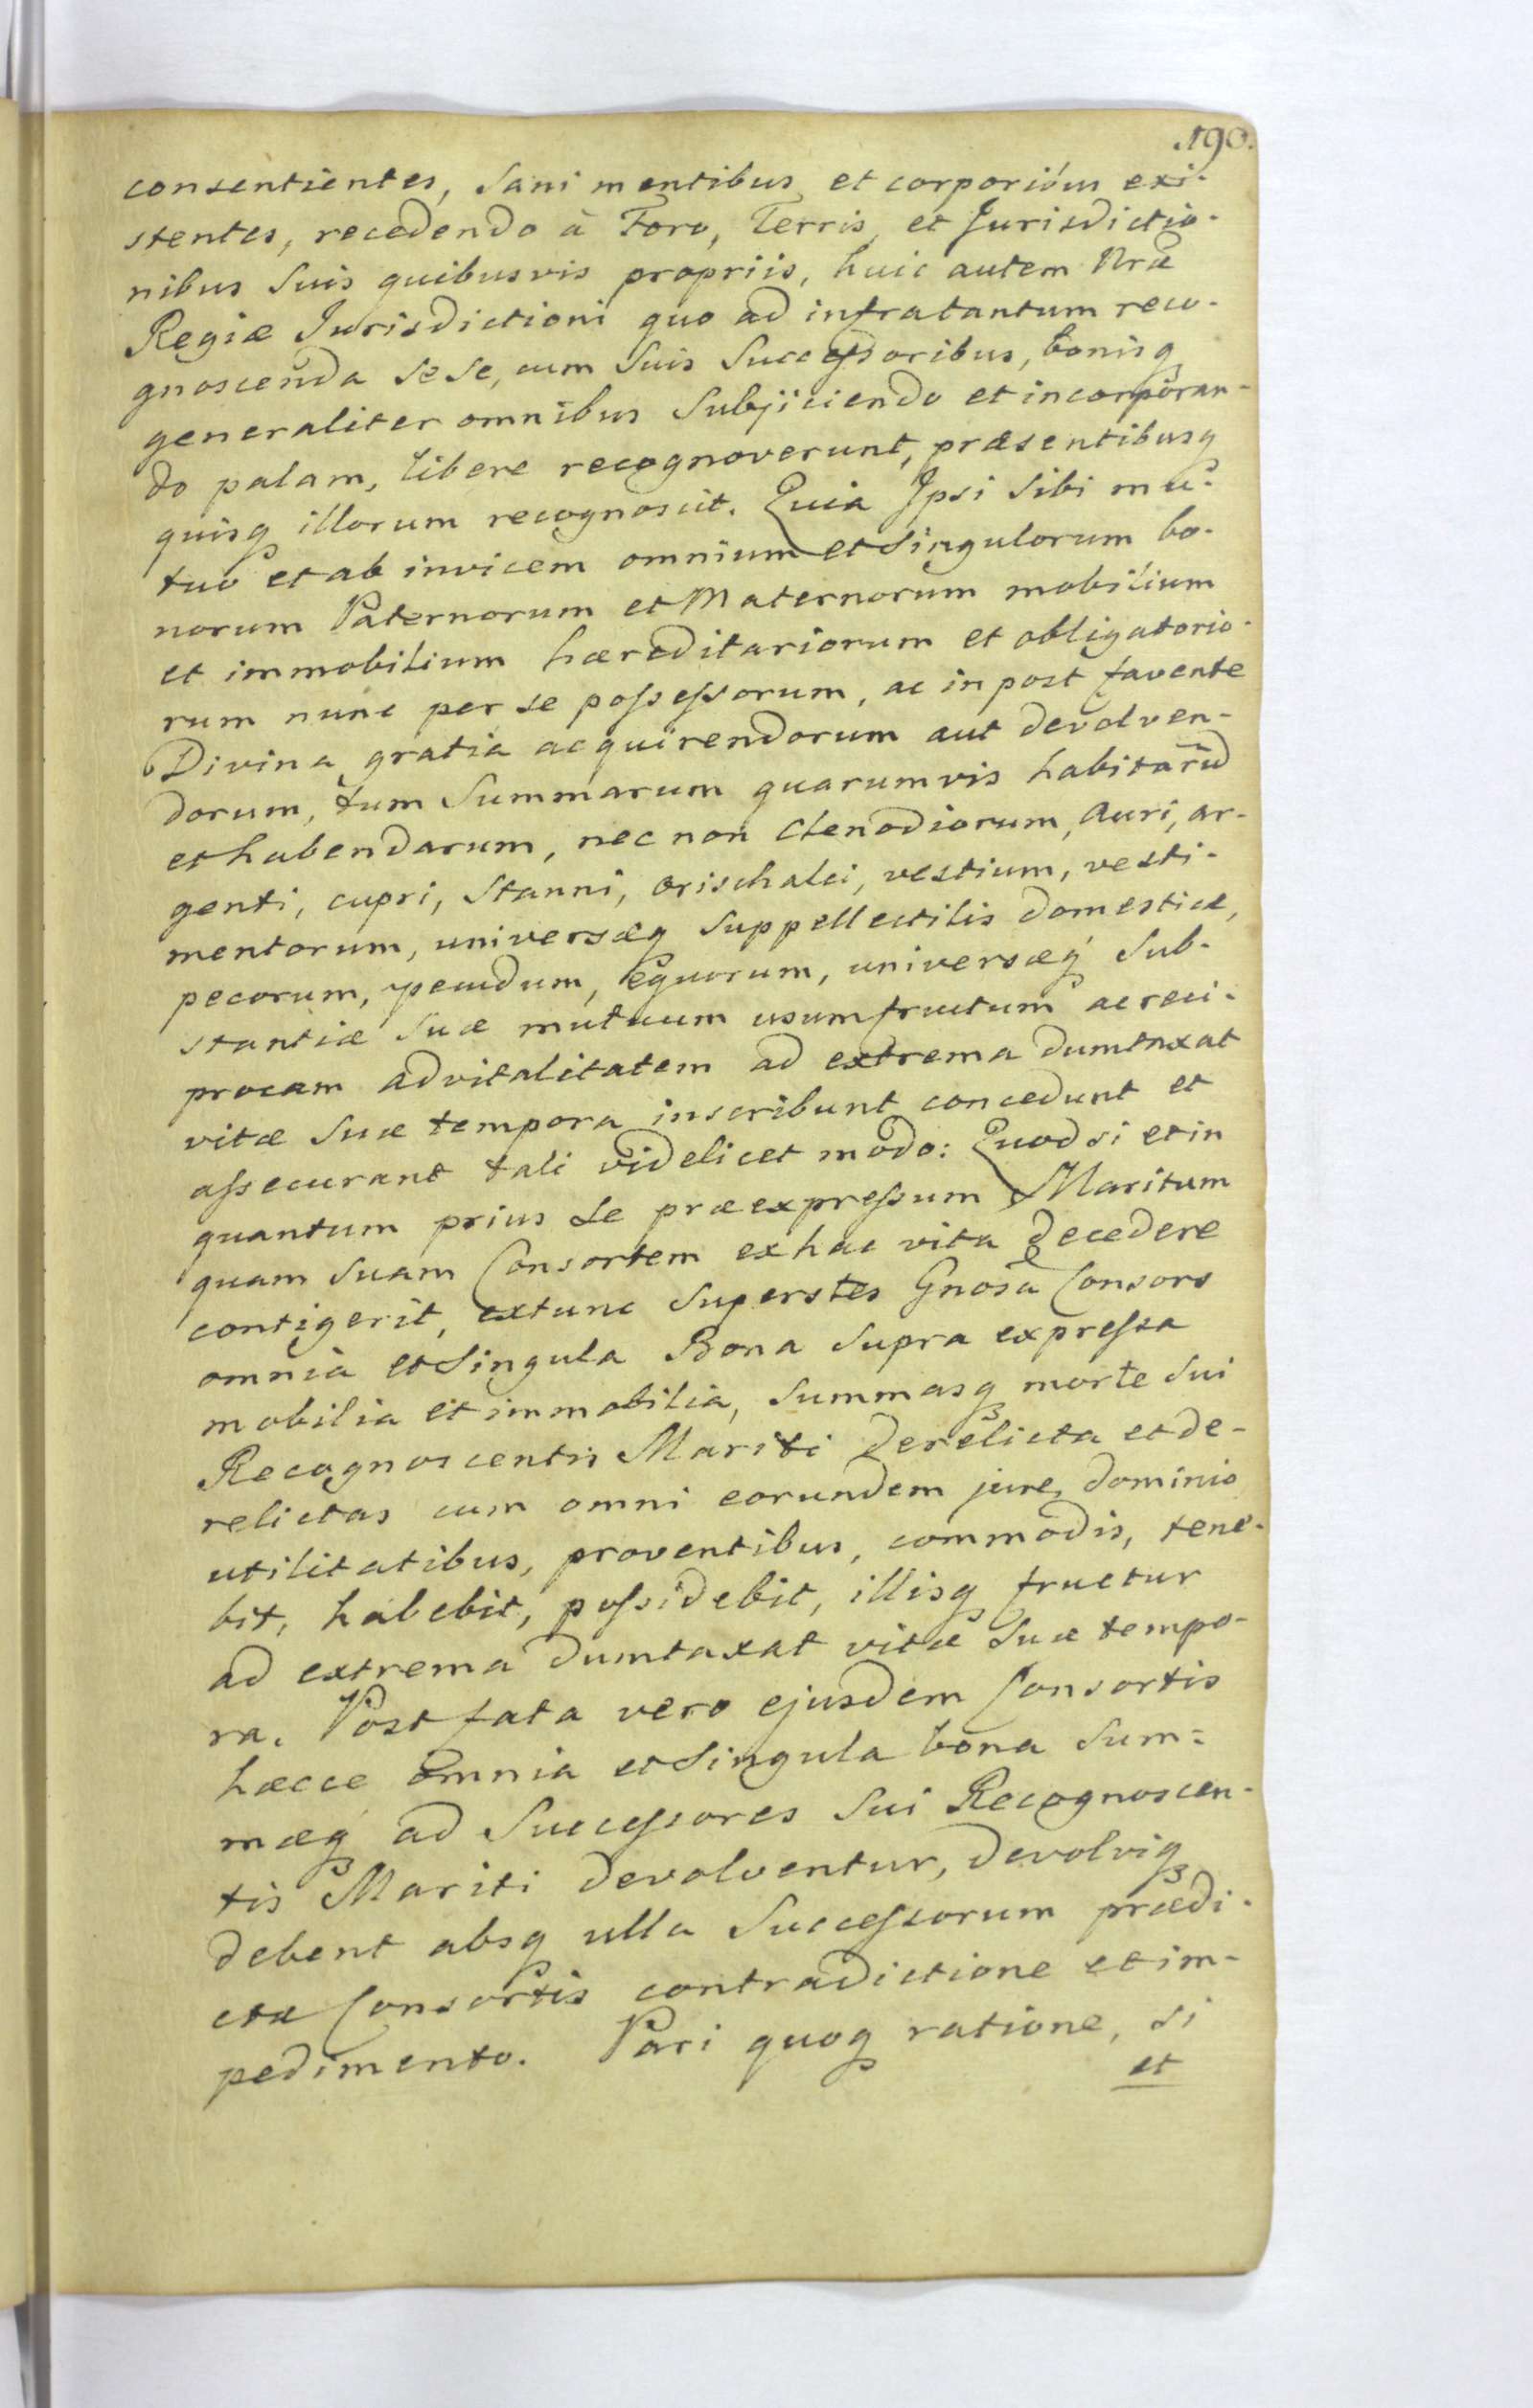 190.
consentientes, sani mentibus et corporibus exi-
stentes, recedendo à Foro, Terris, et Jurisdictio-
nibus suis quibusvis propriis, huic autem Nræ
Regiæ Jurisdictioni quo ad infratantum reco-
gnoscenda sese, cum suis Successoribus, bonisq
generaliter omnibus subjiciendo et incorporan-
do palam, libere recognoverunt, præsentibusq
quisq illorum recognoscit. Quia Ipsi sibi mu-
tuo et ab invicem omnium et singulorum bo-
norum Paternorum et Maternorum mobilium
et immobilium hæreditariorum et obligatorio-
rum nunc per se possessorum, ac in post favente
Divina gratia acquirendorum aut devolven-
dorum, tum Summarum quarumvis habitarū
et habendarum, nec non clenodiorum, auri, ar-
genti, cupri, stanni, orischalci, vestium, vesti-
mentorum, universæq suppellectilis domesticæ,
pecorum, pecudum, equorum, universæq sub-
stantiæ suæ mutuum usumfructum ac reci-
procam advitalitatem ad extrema dumtaxat
vitæ suæ tempora inscribunt concedunt et
assecurant tali videlicet modo: Quod si et in
quantum prius se præexpressum Maritum
quam suam Consortem ex hac vita decedere
contigerit, extunc superstes Gnosa Consors
omnia et singula Bona supra expressa
mobilia et immobilia, summasq morte sui
Recognoscentis Mariti derelicta et de-
relictas cum omni eorundem jure, dominio
utilitatibus, proventibus, commodis, tene-
bit, habebit, possidebit, illisq fruetur
ad extrema dumtaxat vitæ suæ tempo-
ra. Post fata vero ejusdem Consortis
hæcce omnia et singula bona sum=
mæq ad Successores sui Recognoscen-
tis Mariti devolventur, devolviq
debent absq ulla Successorum prædi-
ctæ Consortis contradictione et im-
pedimento. Pari quoq ratione, si
et